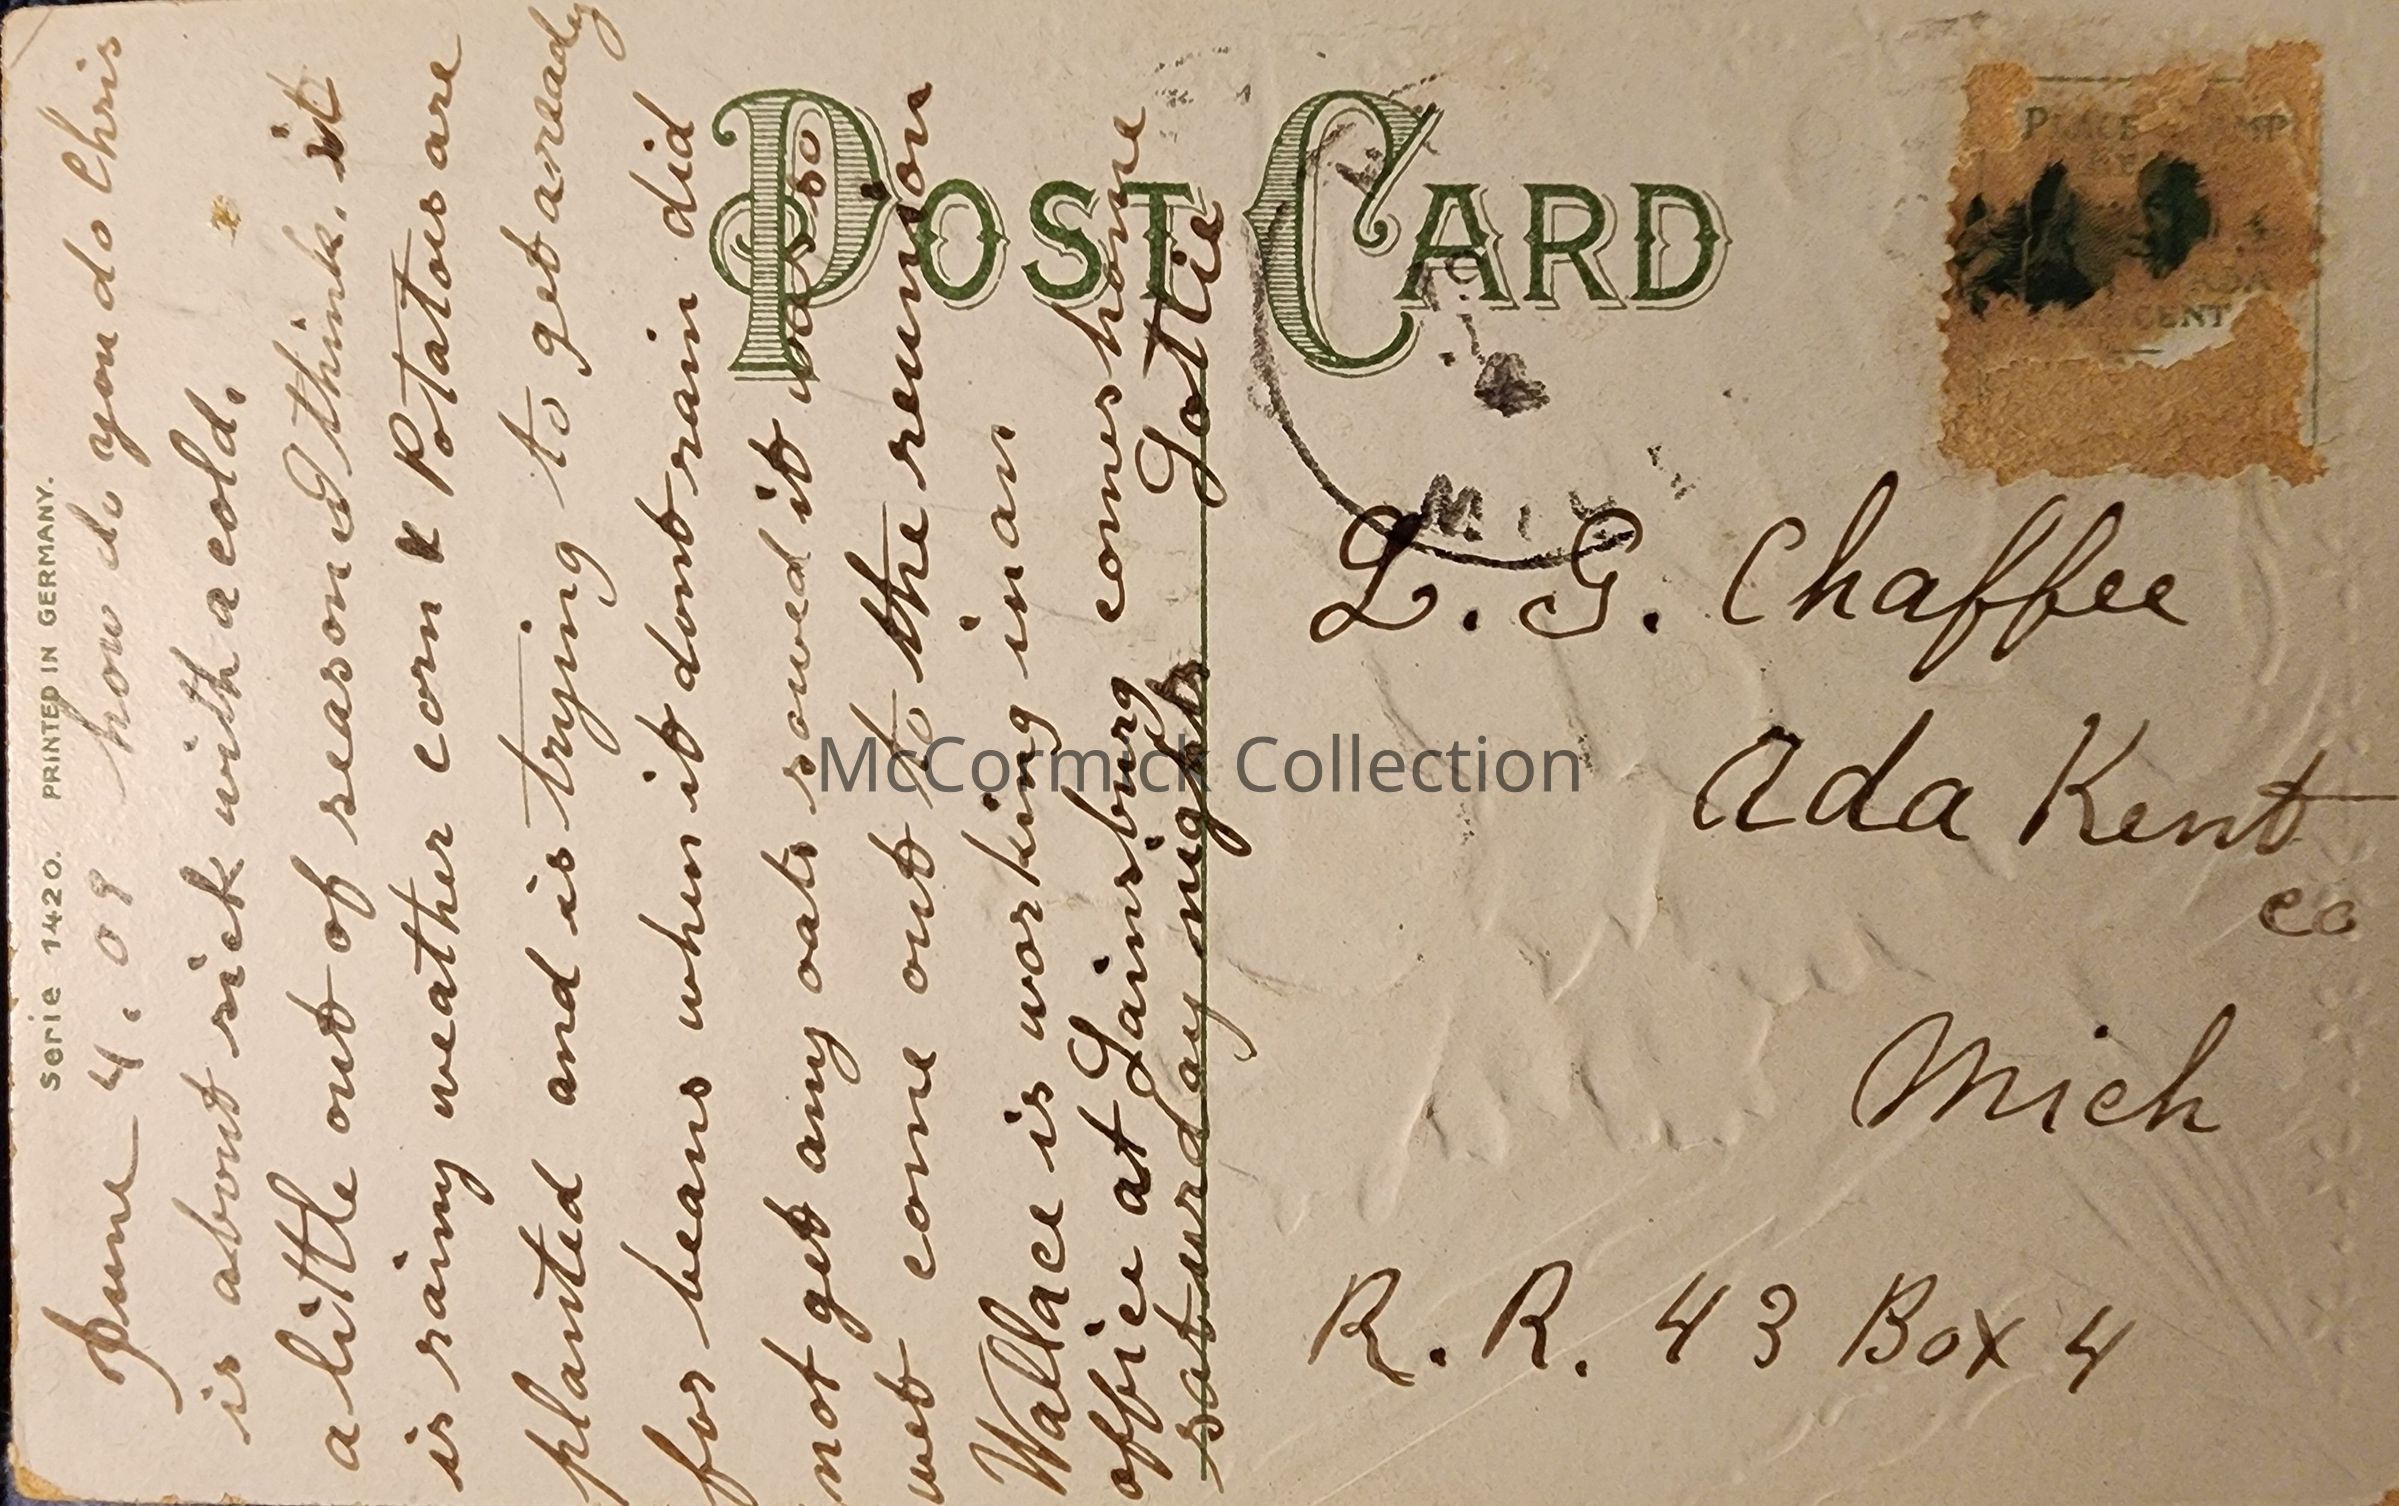 Serie 1420. PRINTED IN GERMANY.
June 4. 09 how do you do Chris
is about sick with a cold.
a little out of season I think. it
is rainy weather corn & Potatois are
planted and is trying to get aready
for beans when it dont rain did
not get any oats sowed it was so
wet come out to the reunion
Wallace is working in an
office at Lainsburg comes home
saturday nights Lottie
POST CARD
CENT
MICH
L. G. Chaffee
Ada Kent
co
Mich
R. R. 43 Box 4
McCormick Collection